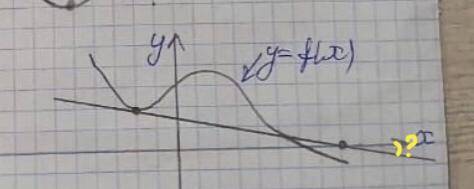 y
y = f(x)
)?
x